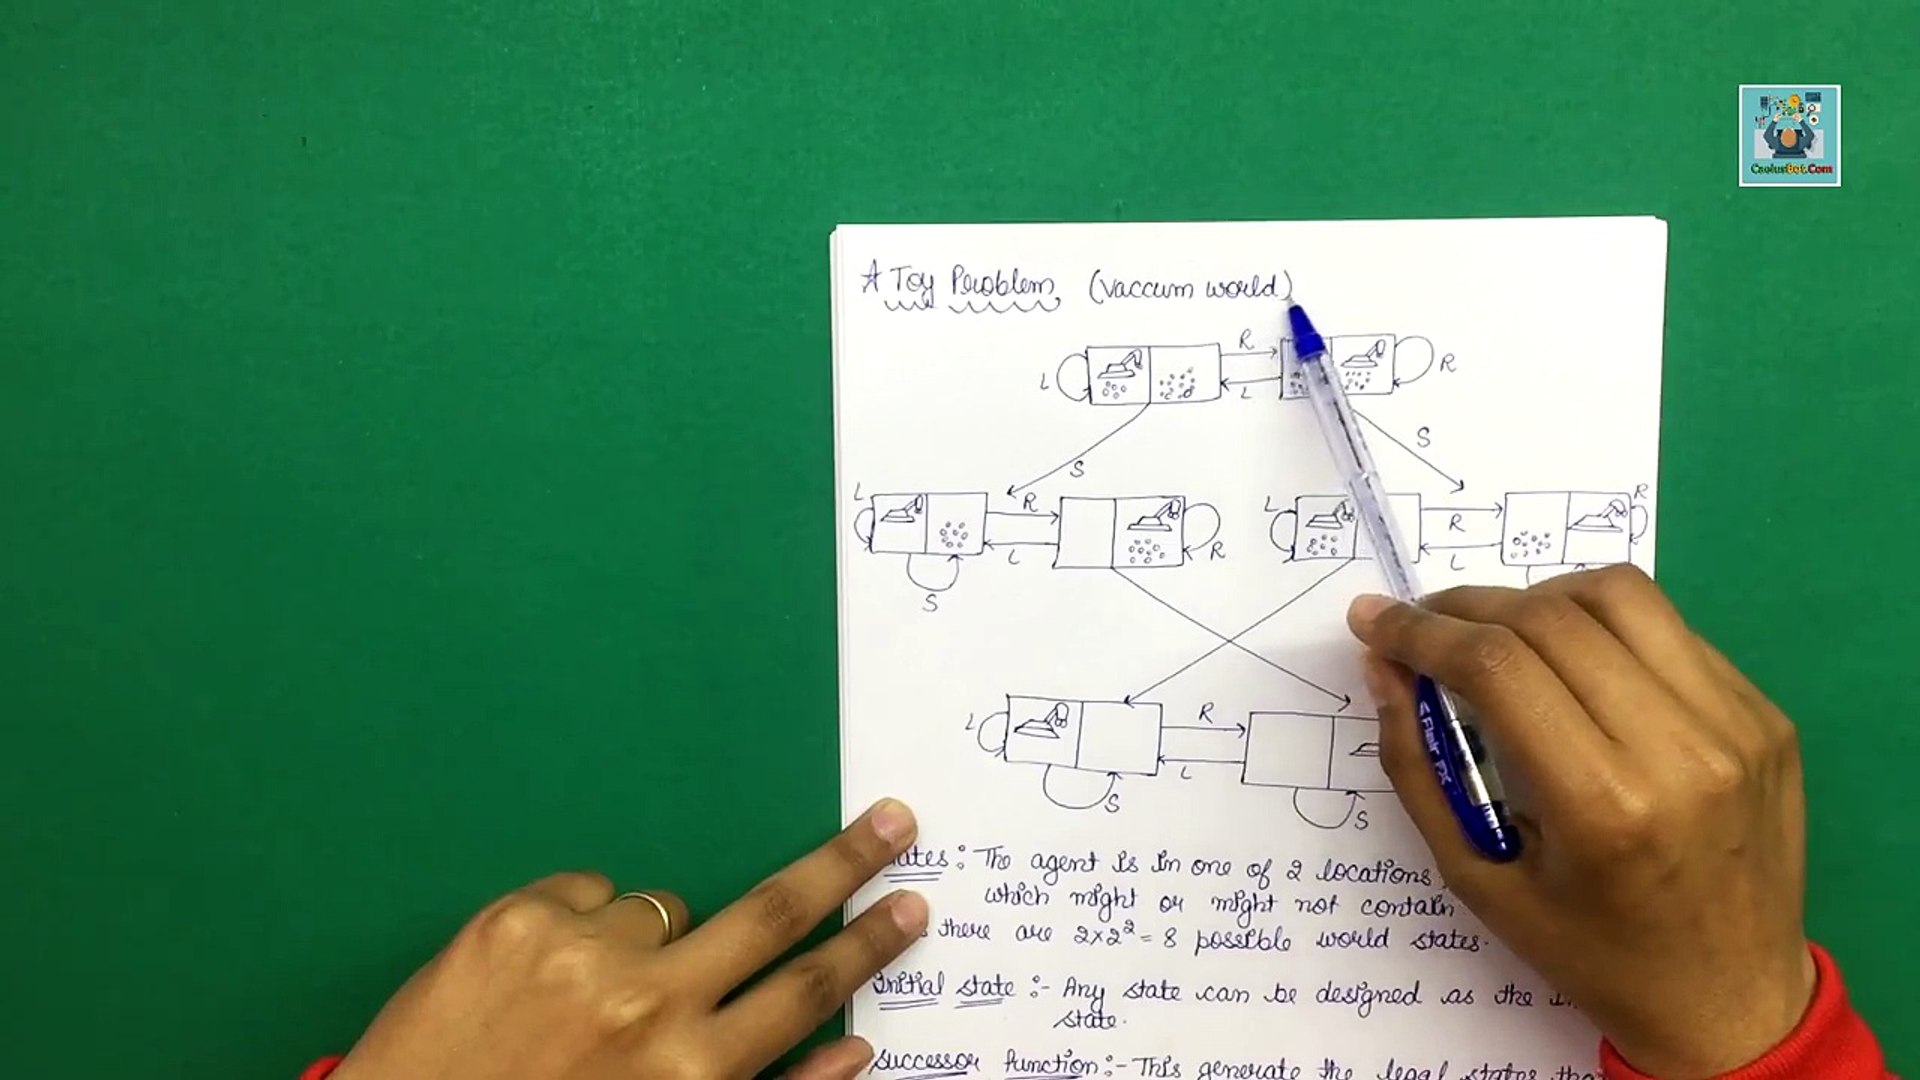 CactusBot.Com
☆ Toy Problem (vaccum world)
R
L R
L
S
S
L R L R R
L R L
S
L R
L
S
S
The agent is in one of 2 locations
which might or might not contain
there are 2x2² = 8 possible world states.
Initial state :- Any state can be designed as the
state.
Successor function :- This generate the legal states
Flair FX